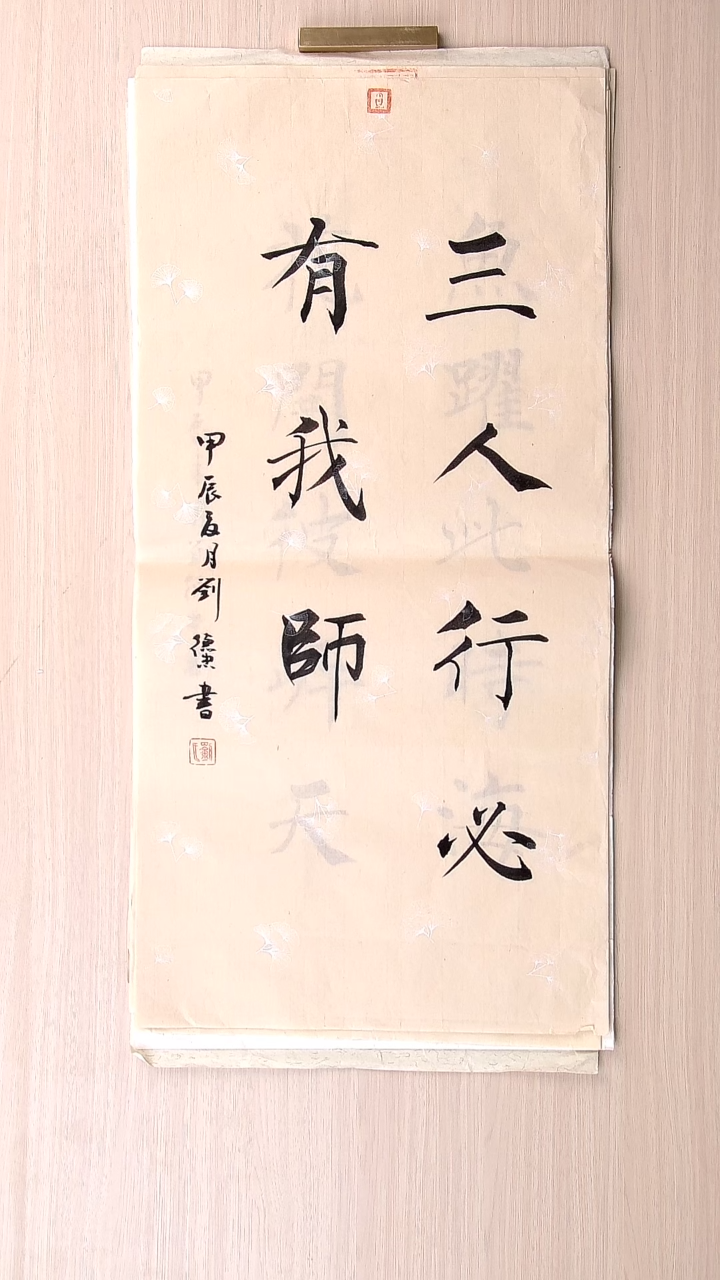 三人行必
有我師
甲辰夏月劉德書